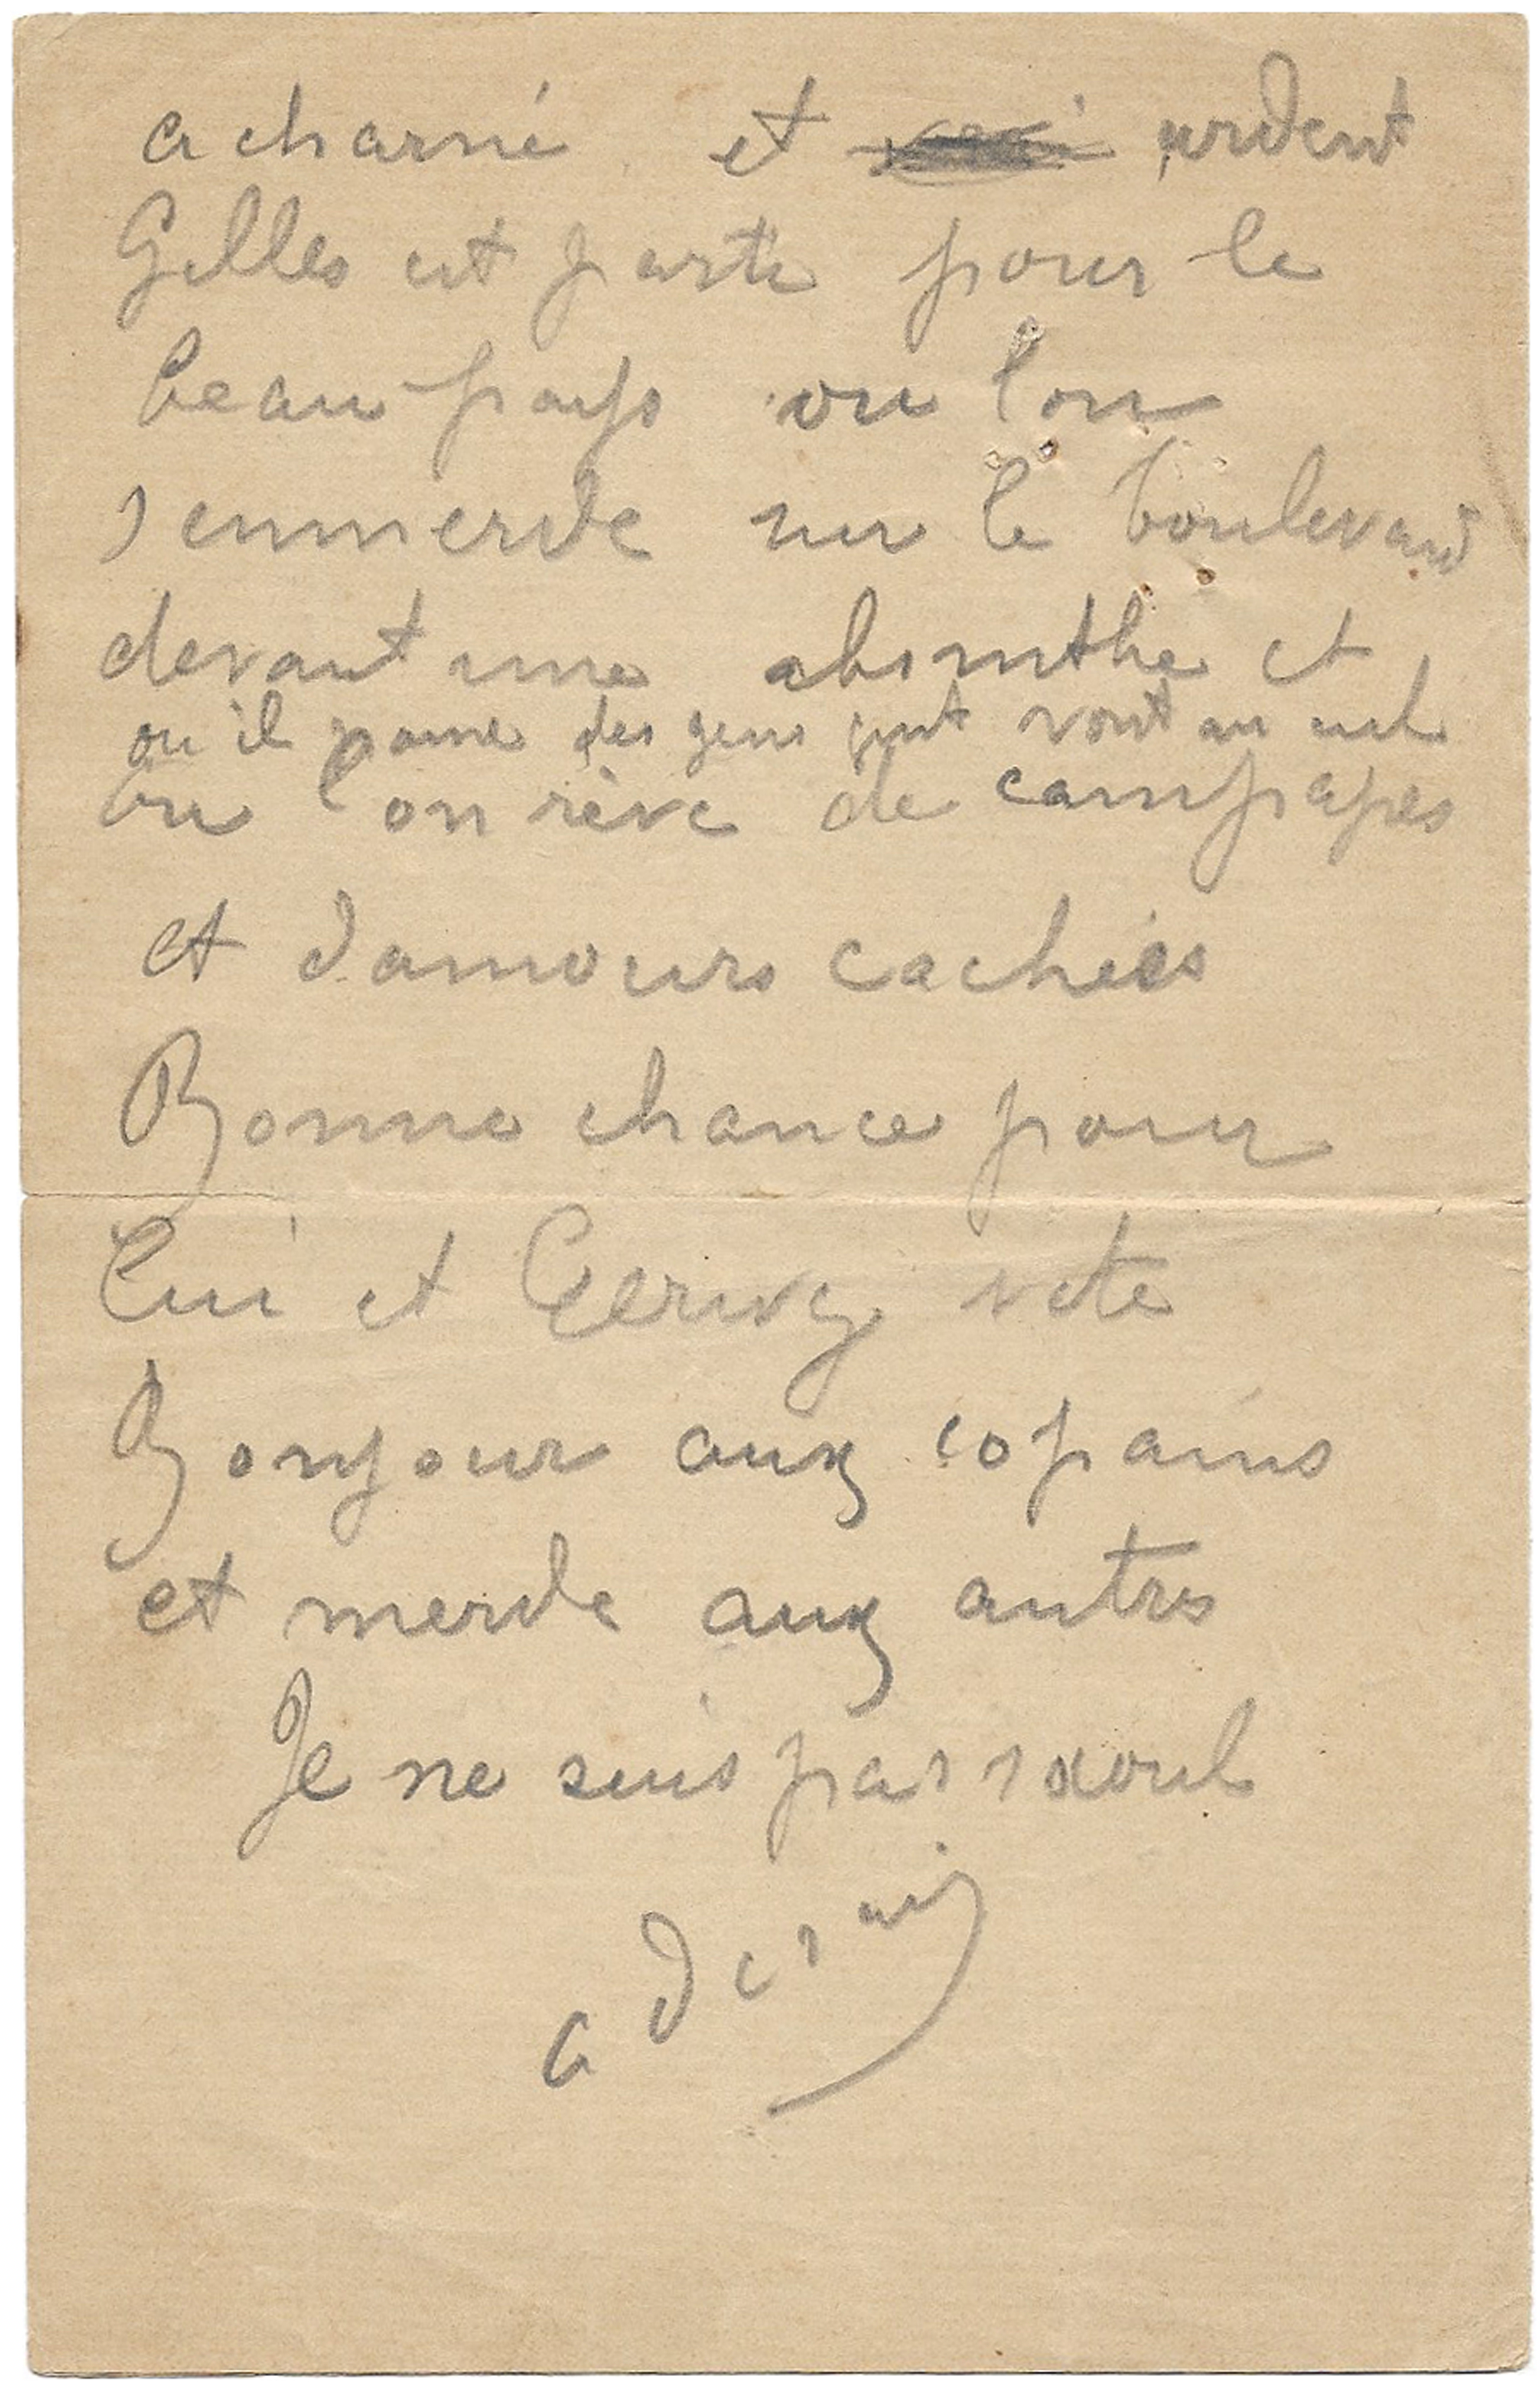 acharné et ardent
Gilles est parti pour le
beau pays ou lon
s emmerde sur le boulevard
devant une absinthe et
ou il passe des gens qui vont au
ou l'on rêve de campagnes
et d amours cachées
Bonne chance pour
lui et vite
Bonjour aux copains
et merde aux autres
Je ne suis pas saoul
a derain